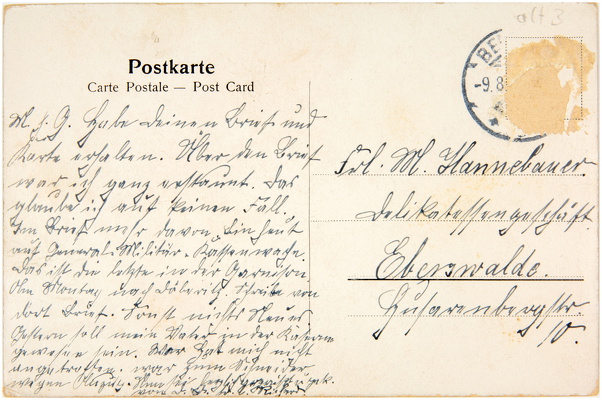 alt 3
BE
-9.8
Postkarte
Carte Postale — Post Card
M. l. G. Habe deinen Brief und
Karte erhalten. Über den Brief
war ich ganz erstaunt. Das
glaube ich auf keinen Fall.
Im Brief mehr davon. Bin heut
auf General-Militär-Kassenwache.
Das ist die letzte in der Garnison
Am Montag nach Döberitz schreibe von
dort Brief. Sonst nichts Neues
Gestern soll mein Vater in der Kaserne
gewesen sein. War hat mich nicht
angetroffen. war zum Schneider
wegen
von D.
Frl. M. Hannebauer
Delikatessengeschäft
Eberswalde.
Husarenbergstr.
10.